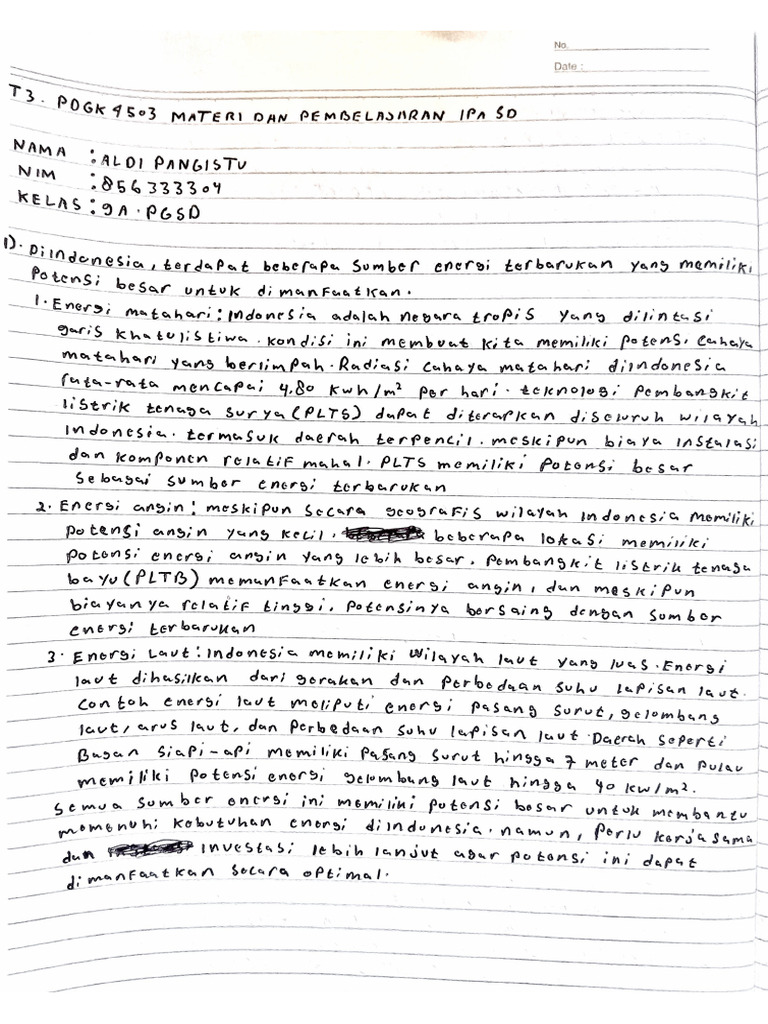 No.
Date :
T3. PDGK 4503 MATERI DAN PEMBELAJARAN IPA SD
NAMA : ALDI PANGISTU
NIM : 856333304
KELAS : 9A. PGSD
1). Diindonesia, terdapat beberapa sumber energi terbarukan yang memiliki
potensi besar untuk dimanfaatkan.
1. Energi matahari : Indonesia adalah negara tropis yang dilintasi
garis khatulistiwa. kondisi ini membuat kita memiliki potensi cahaya
matahari yang berlimpah. Radiasi cahaya matahari diindonesia
rata-rata mencapai 4.80 kwh/m² per hari. teknologi pembangkit
listrik tenaga surya (PLTS) dapat diterapkan diseluruh wilayah
Indonesia. termasuk daerah terpencil. meskipun biaya instalasi
dan komponen relatif mahal. PLTS memiliki potensi besar
sebagai sumber energi terbarukan
2. Energi angin : meskipun secara geografis wilayah Indonesia memiliki
potensi angin yang kecil. beberapa lokasi memiliki
potensi energi angin yang lebih besar. Pembangkit listrik tenaga
bayu (PLTB) memanfaatkan energi angin, dan meskipun
biayanya relatif tinggi. potensinya bersaing dengan sumber
energi terbarukan
3. Energi Laut : Indonesia memiliki wilayah laut yang luas. Energi
laut dihasilkan dari gerakan dan perbedaan suhu lapisan laut.
Contoh energi laut meliputi energi pasang surut, gelombang
laut, arus laut, dan perbedaan suhu lapisan laut. Daerah seperti
Bagan siapi-api memiliki pasang surut hingga 7 meter dan pulau
memiliki potensi energi gelombang laut hingga 40 kw/m².
Semua sumber energi ini memiliki potensi besar untuk membantu
memenuhi kebutuhan energi diindonesia. namun, perlu kerja sama
dan investasi lebih lanjut agar potensi ini dapat
dimanfaatkan secara optimal.